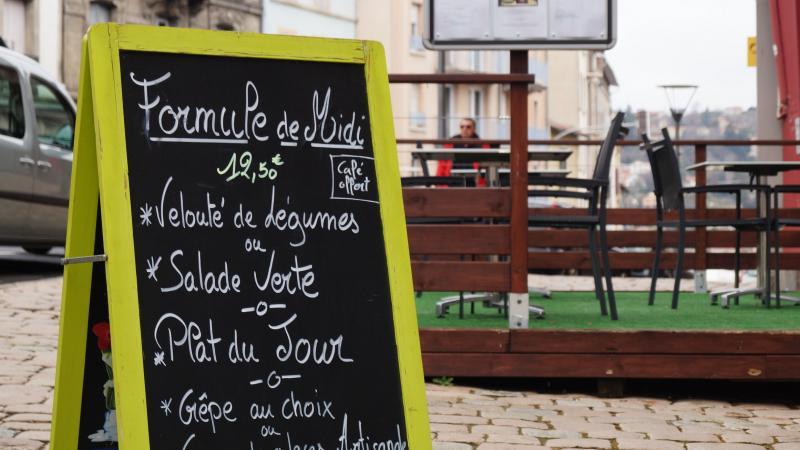 Formule de Midi
12,50€
Café
offert
*Velouté de Légumes
ou
*Salade Verte
-o-
*Plat du Jour
-o-
*Crêpe au choix
ou
Artisanale